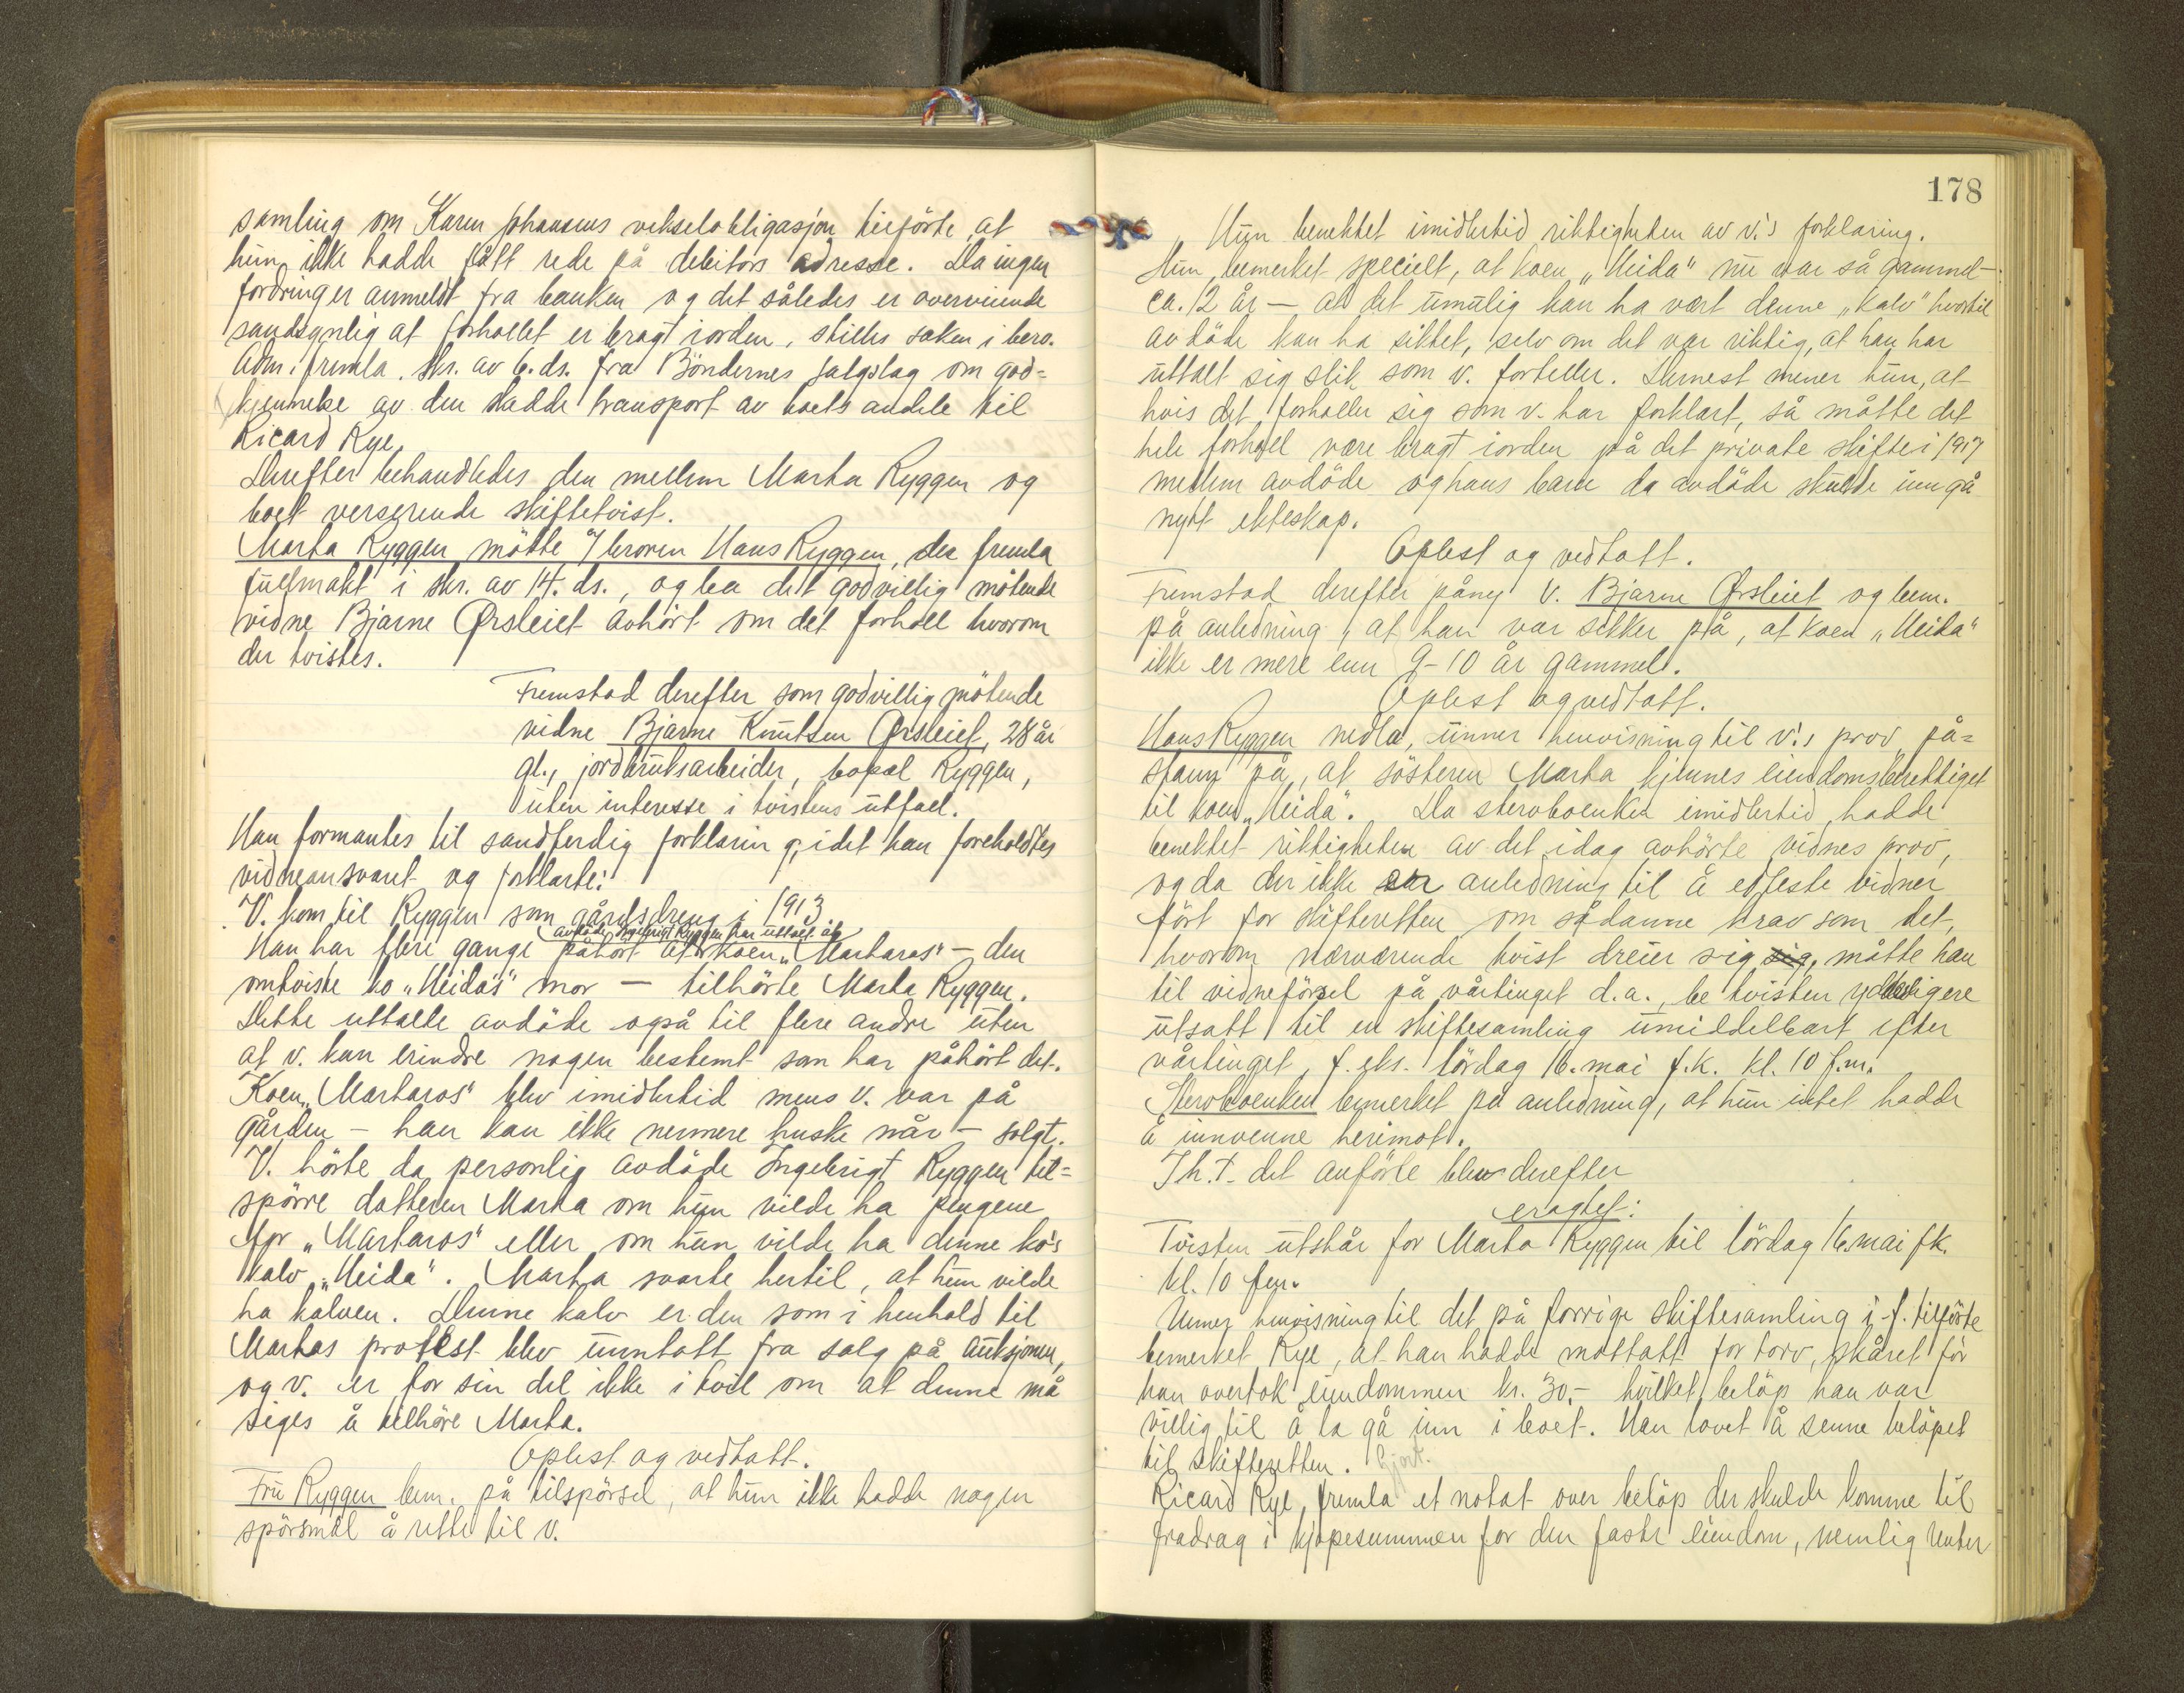 samling om Karen Johansens vekselobligasjon tilførte, at
hun ikke hadde fått rede på debitors adresse. Da ingen
fordringer anmeldt fra banken og det således er overveiende
sandsynlig at forholdet er bragt iorden, stilles saken i bero.
Adm. fremla skr. av 6. ds. fra Bøndernes salgslag om god=
kjennelse av den skedde transport av boets andele til
Ricard Rye.
Derefter behandledes den mellem Marta Ryggen og
boet verserende skiftetvist.
Marta Ryggen møtte v/ broren Hans Ryggen, der fremla
fullmakt i skr. av 14. ds., og bea det godvillig møtende
vidne Bjarne Ørsleiet avhørt om det forhold hvorom
der tvistes.
Fremstod derefter som godvillig møtende
vidne Bjarne Knutsen Ørsleiet, 28 år
gl., jordbruksarbeider, bopæl Ryggen,
uten interesse i tvistens utfall.
Han formantes til sandferdig forklaring, idet han foreholdtes
vidneansvaret og forklarte:
V. kom til Ryggen som gårdsdreng i 1913.
avdøde Ingebrigt Ryggen har uttalt at
Han har flere gange påhørt at koen „Martaros" – den
omtviste ko „Heida's" mor – tilhørte Marta Ryggen.
Dette uttalte avdøde også til flere andre uten
at v. kan erindre nogen bestemt som har påhørt det.
Koen „Martaros" blev imidlertid mens v. var på
gården – han kan ikke nermere huske når – solgt.
V. hørte da personlig avdøde Ingebrigt Ryggen til=
spørre datteren Marta om hun vilde ha pengene
for „Martaros" eller om hun vilde ha denne ko's
kalv „Heida". Marta svarte hertil, at hun vilde
ha kalven. Denne kalv er den som i henhold til
Martas protest blev unntatt fra salg på auksjonen,
og v. er for sin del ikke i tvil om at denne må
siges å tilhøre Marta.
Oplest og vedtatt.
Fru Ryggen bem. på tilspørsel, at hun ikke hadde nogen
spørsmål å rette til v.
178
Hun benektet imidlertid riktigheten av v.'s forklaring.
Hun bemerket specielt, at koen „Heida" nu var så gammel –
ca. 12 år – at det umulig kan ha vært denne „kalv" hvortil
avdøde kan ha siktet, selv om det var riktig, at han har
uttalt sig slik som v. forteller. Dernest mener hun, at
hvis det forholder sig som v. har forklart, så måtte det
hele forhold være bragt iorden på det private skifte i 1917
mellem avdøde og hans barn da avdøde skulde inngå
nytt ekteskap.
Oplest og vedtatt.
Fremstod derefter påny v. Bjarne Ørsleiet og bem.
på anledning, at han var sikker på, at koen „Heida"
ikke er mere enn 9-10 år gammel.
Oplest og vedtatt.
Hans Ryggen nedla, unner henvisning til v's prov, på=
stann på, at søsteren Marta kjennes eiendomsberettiget
til koen „Heida". Da sterboenken imidlertid hadde
benektet riktigheten av det idag avhørte vidnes prov,
og da der ikke er anledning til å edfeste vidner
ført for skifteretten om sådanne krav som det,
hvorom nærværende tvist dreier sig sig, måtte han
til vidneførsel på vårtinget d.a., be tvisten ydderligere
utsatt til en skiftesamling umiddelbart efter
vårtinget, f. eks. lørdag 16. mai f.k. kl. 10 f.m.
Sterboenken bemerket på anledning, at hun intet hadde
å innvenne herimot.
Th. t. det anførte blev derefter
eragtet:
Tvisten utstår for Marta Ryggen til lørdag 16. mai fk.
kl. 10 fm.
Unner henvisning til det på forrige skiftesamling i-f. tilførte
bemerket Rye, at han hadde mottatt for torv, skåret før
han overtok eiendommen kr. 30.- hvilket beløp han var
villig til å la gå inn i boet. Han lovet å senne beløpet
til skifteretten. Gjort.
Ricard Rye, fremla et notat over beløp der skulde komme til
fradrag i kjøpesummen for den faste eiendom, nemlig